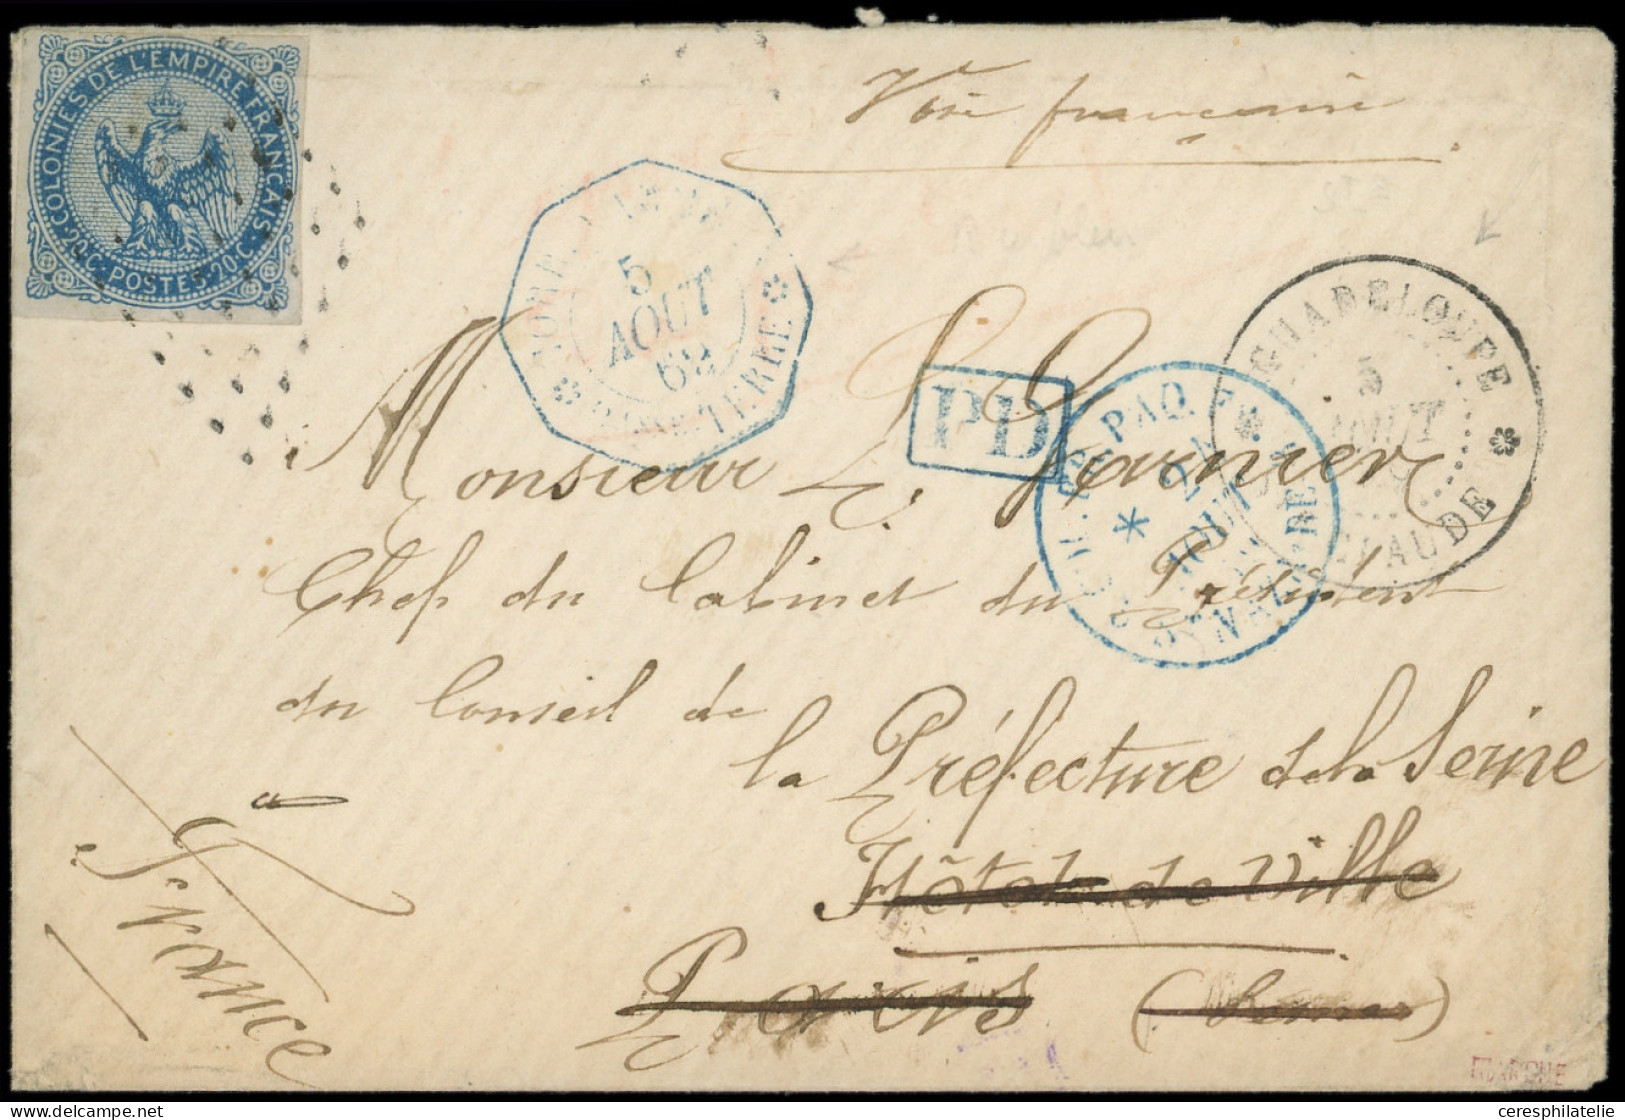 COLONIES DE L'EMPIRE FRANÇAIS
20 C. POSTES 20 C.
Voie française
5
AOUT
68
BASSE-TERRE
GUADELOUPE
5
AOUT
CLAUDE
PD
PAQ.
AOUT
Monsieur L. Garnier
Chef du Cabinet du Président
du Conseil de
la Préfecture de la Seine
Hôtel de Ville
Paris (Seine)
à
France